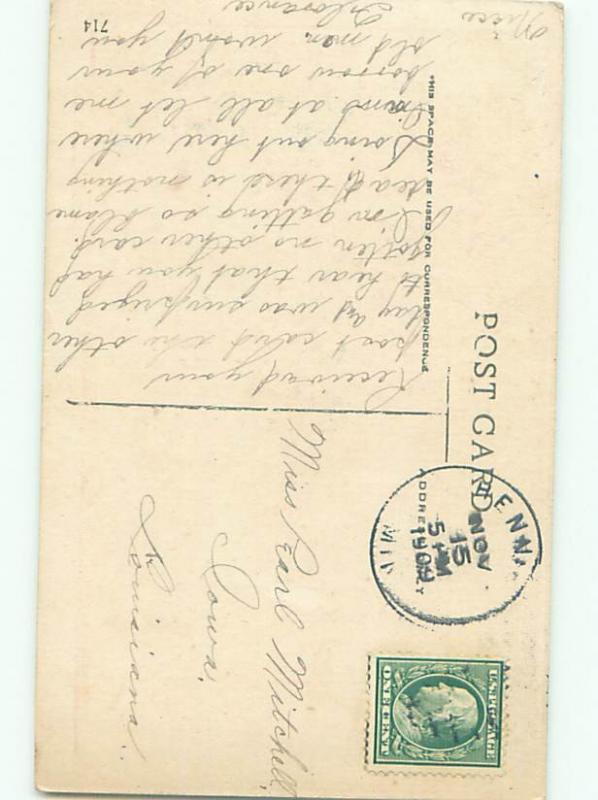 POST CARD
THIS SPACE MAY BE USED FOR CORRESPONDENCE
Received your
post card the other
day and was surprised
to hear that you had
gotten no other card.
I'm getting so blame
sead there is nothing
doing out here where
at all let me
borrow one of your
old men, wont you
Florence
714
NOV
15
5 PM
1909
Miss Pearl Mitchell,
Iowa,
Louisiana.
U.S. POSTAGE
ONE CENT